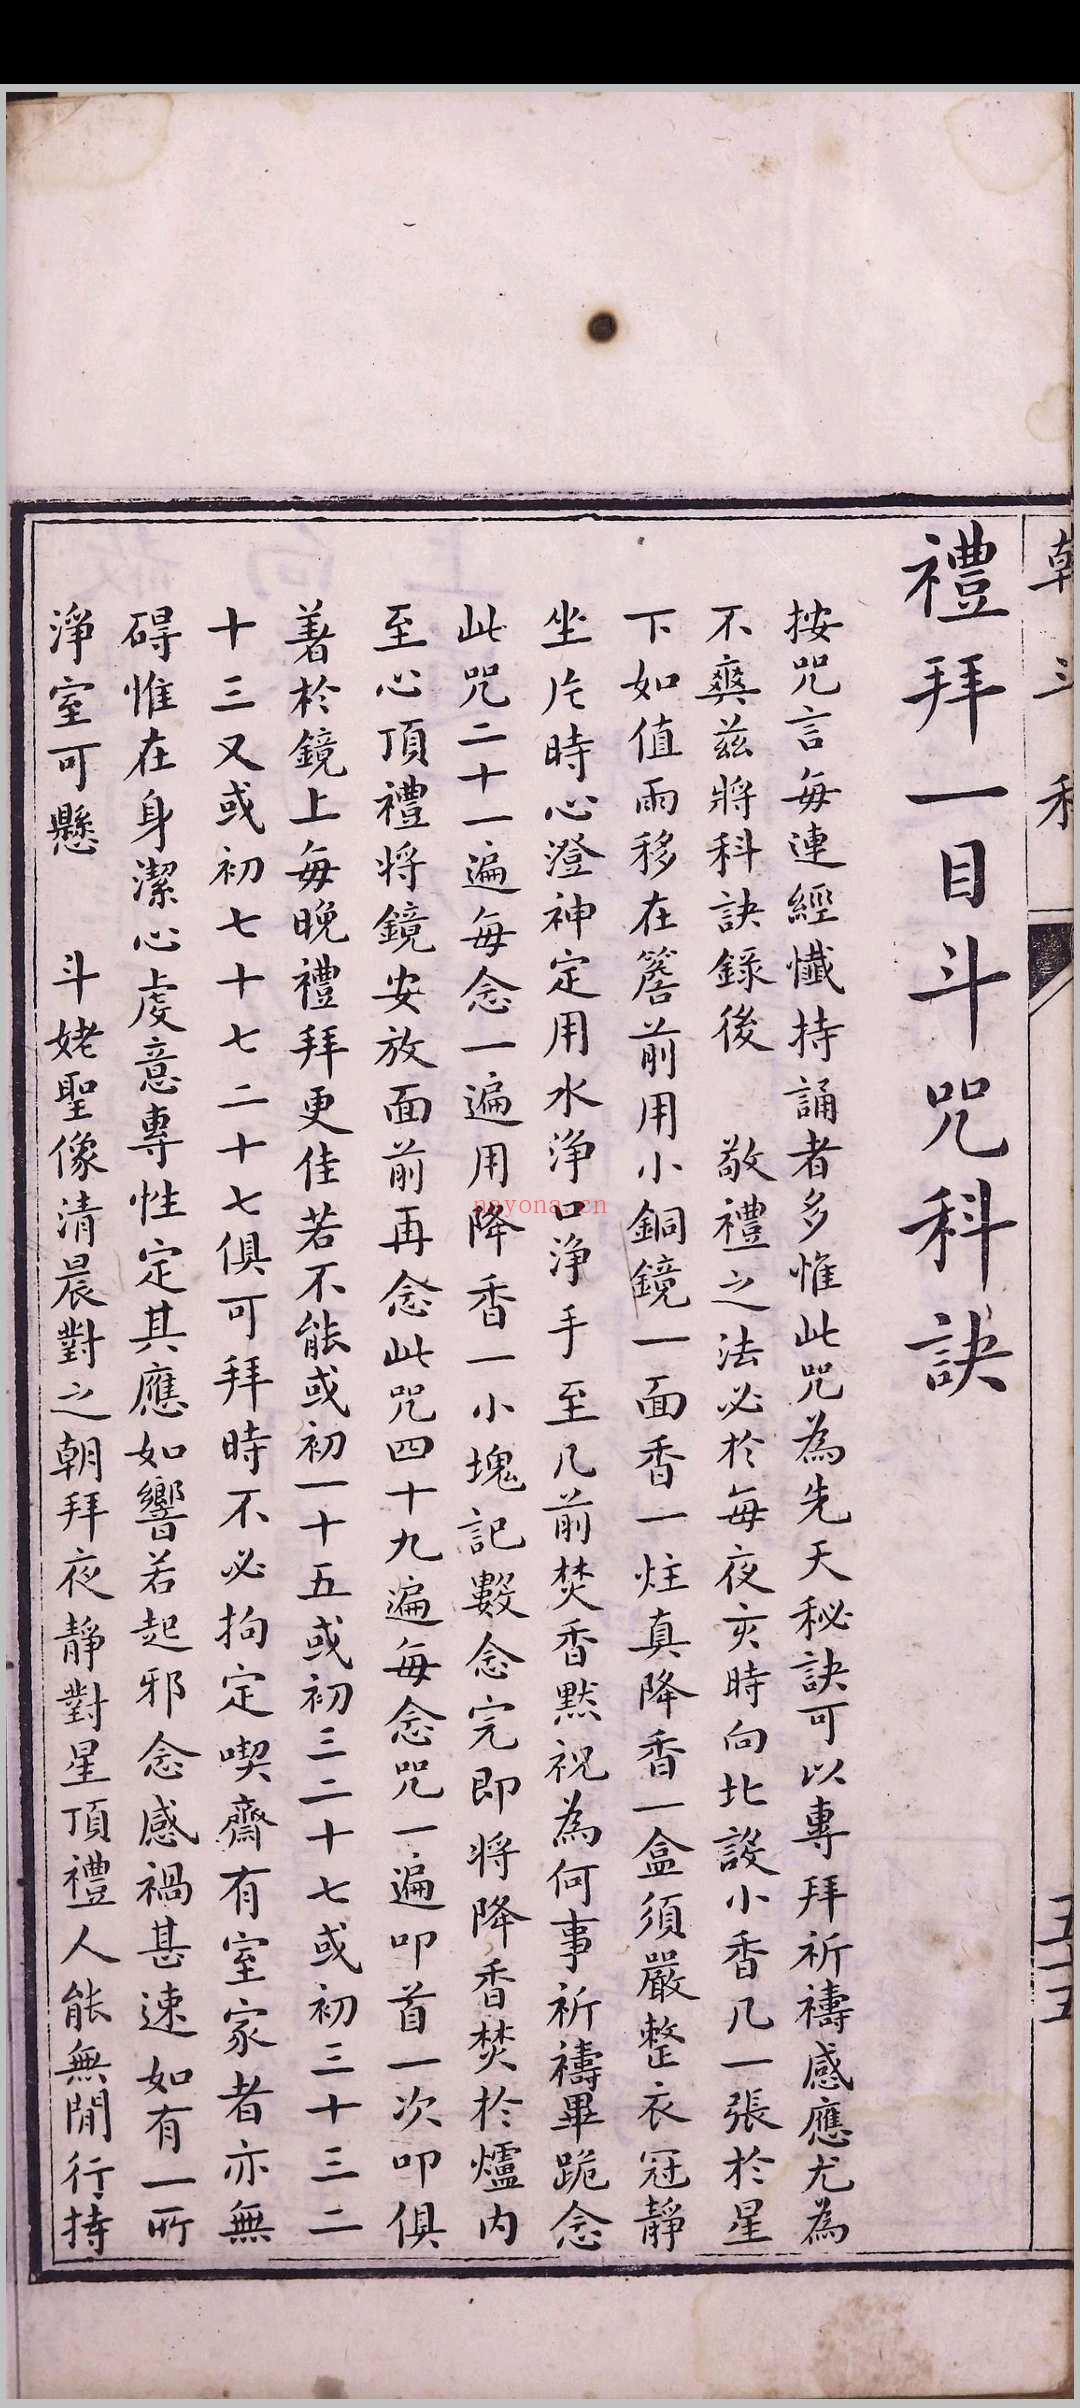 朝斗科
五十五
禮拜一目斗咒科訣
按咒言每連經懺持誦者多惟此咒為先天秘訣可以專拜祈禱感應尤為
不爽茲將科訣錄後　敬禮之法必於每夜亥時向北設小香几一張於星
下如值雨移在簷前用小銅鏡一面香一炷真降香一盒須嚴整衣冠靜
坐片時心澄神定用水淨口淨手至几前焚香默祝為何事祈禱畢跪念
此咒二十一遍每念一遍用降香一小塊記數念完即將降香焚於爐內
至心頂禮將鏡安放面前再念此咒四十九遍每念咒一遍叩首一次叩俱
着於鏡上每晚禮拜更佳若不能或初一十五或初三二十七或初三十三二
十三又或初七十七二十七俱可拜時不必拘定喫齋有室家者亦無
碍惟在身潔心虔意專性定其應如響若起邪念感禍甚速如有一所
淨室可懸　斗姥聖像清晨對之朝拜夜靜對星頂禮人能無閒行持
nayona.cn